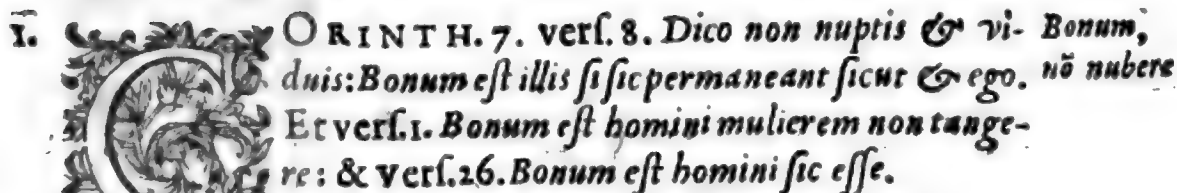 ī. CORINTH. 7. verſ. 8. Dico non nuptis & vi- Bonum,
duis: Bonum eſt illis ſi ſic permaneant ſicut & ego. nõ nubere
Et verſ. 1. Bonum eſt homini mulierem non tange-
re: & verſ. 26. Bonum eſt homini ſic eſſe.